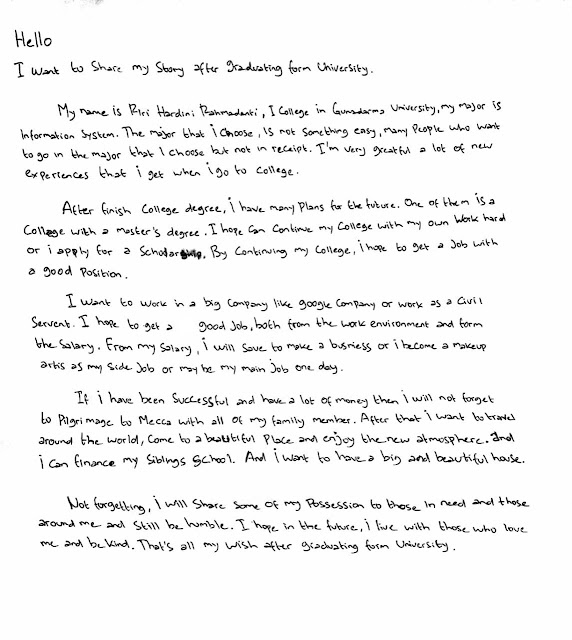 Hello
I want to Share my Story after graduating form University.
My name is Riri Hardini Rahmadanti, I College in Gunadarma University, my major is
Information System. The major that i choose, is not something easy, many People who want
to go in the major that I choose but not in receipt. I'm very greatful a lot of new
experiences that i get when i go to College.
After finish College degree, i have many Plans for the future. One of them is a
College with a master's degree. I hope can Continue my College with my own work hard
or i apply for a Scholarship. By Continuing my College, i hope to get a Job with
a good Position.
I want to work in a big Company like google Company or work as a Civil
Servent. I hope to get a good Job, both from the work environment and form
the Salary. From my Salary, i will Save to make a business or i become a makeup
artis as my Side Job or may be my main Job one day.
If i have been Successful and have a lot of money then i will not forget
to Pilgrimage to Mecca with all of my family member. After that i want to travel
around the world, Come to a beautiful Place and enjoy the new atmosphere. And
i can finance my Siblings School. And i want to have a big and beautiful house.
Not forgetting, i will Share Some of my Possession to those in need and those
around me and Still be humble. I hope in the future, i live with those who love
me and be kind. That's all my wish after graduating form University.